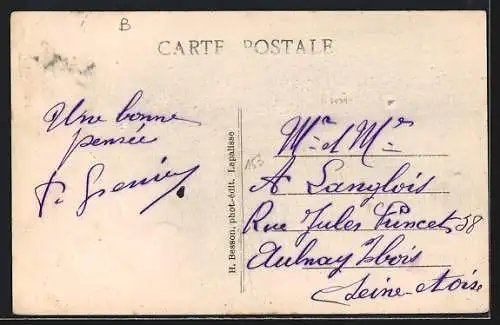 B
CARTE POSTALE
Une bonne
pensée
H. Besson, phot.-édit. Lapalisse
153
Mr et Mme
A Langlois
Rue Jules Princet 58
Aulnay s/bois
Seine-et-oise